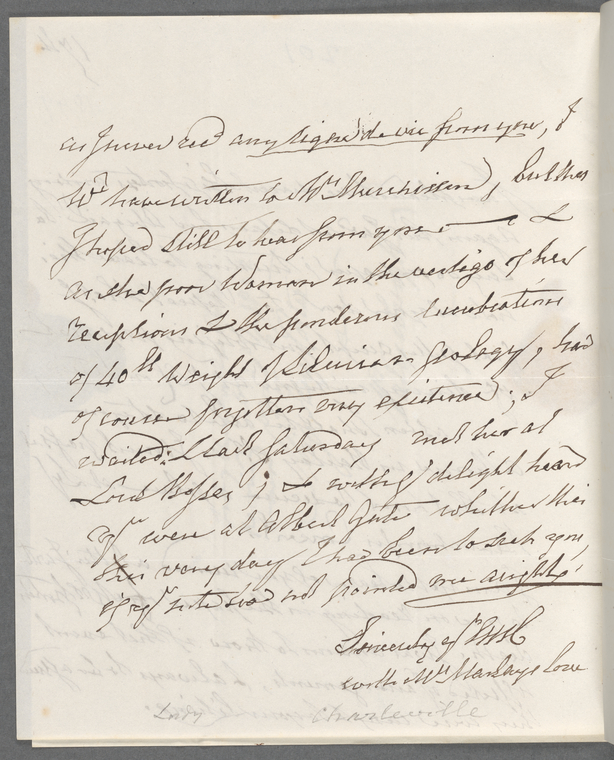 as I never recd any signe de vie from you, I
wd have written to Mrs Murchison, but that
I hoped still to hear from you — &
as the poor Woman in the vertigo of her
receptions & the ponderous lucubrations
of 40lb Weight of Silurian Geology, had
of course forgotten my existence; I
waited: Last Saturday met her at
Lord Rosses; & with gt delight heard
yu were at Albert Gate whither this
this very day I had been to seek you,
if yr note had not pointed me aright!
Sincerely yrs
with Mrs Love
Lady Charleville